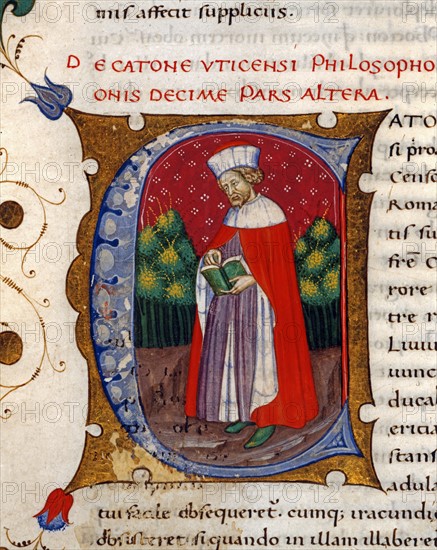 mis affecit suppliciis.
DE CATONE VTICENSI PHILOSOPHO
ONIS DECIME PARS ALTERA.
CATO
si pro
Cense
Roma
tis su
frē C
rore
tre r
Liuiu
iunc
ducal
ericia
stans
adula
tui facile obsequeret. cumq; iracundi
obsisteret si quando in illam illaberer